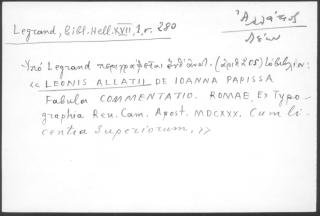 Legrand, Bibl. Hell. XVII, 1, σ. 280
Ἀλλάτιος
Λέων
Ὑπὸ Legrand περιγράφεται (ἀριθ 205)
« LEONIS ALLATII DE IOANNA PAPISSA
Fabula COMMENTATIO. ROMAE, Ex Typo-
graphia Rev. Cam. Apost. MDCXXX. Cum li-
centia Superiorum, »